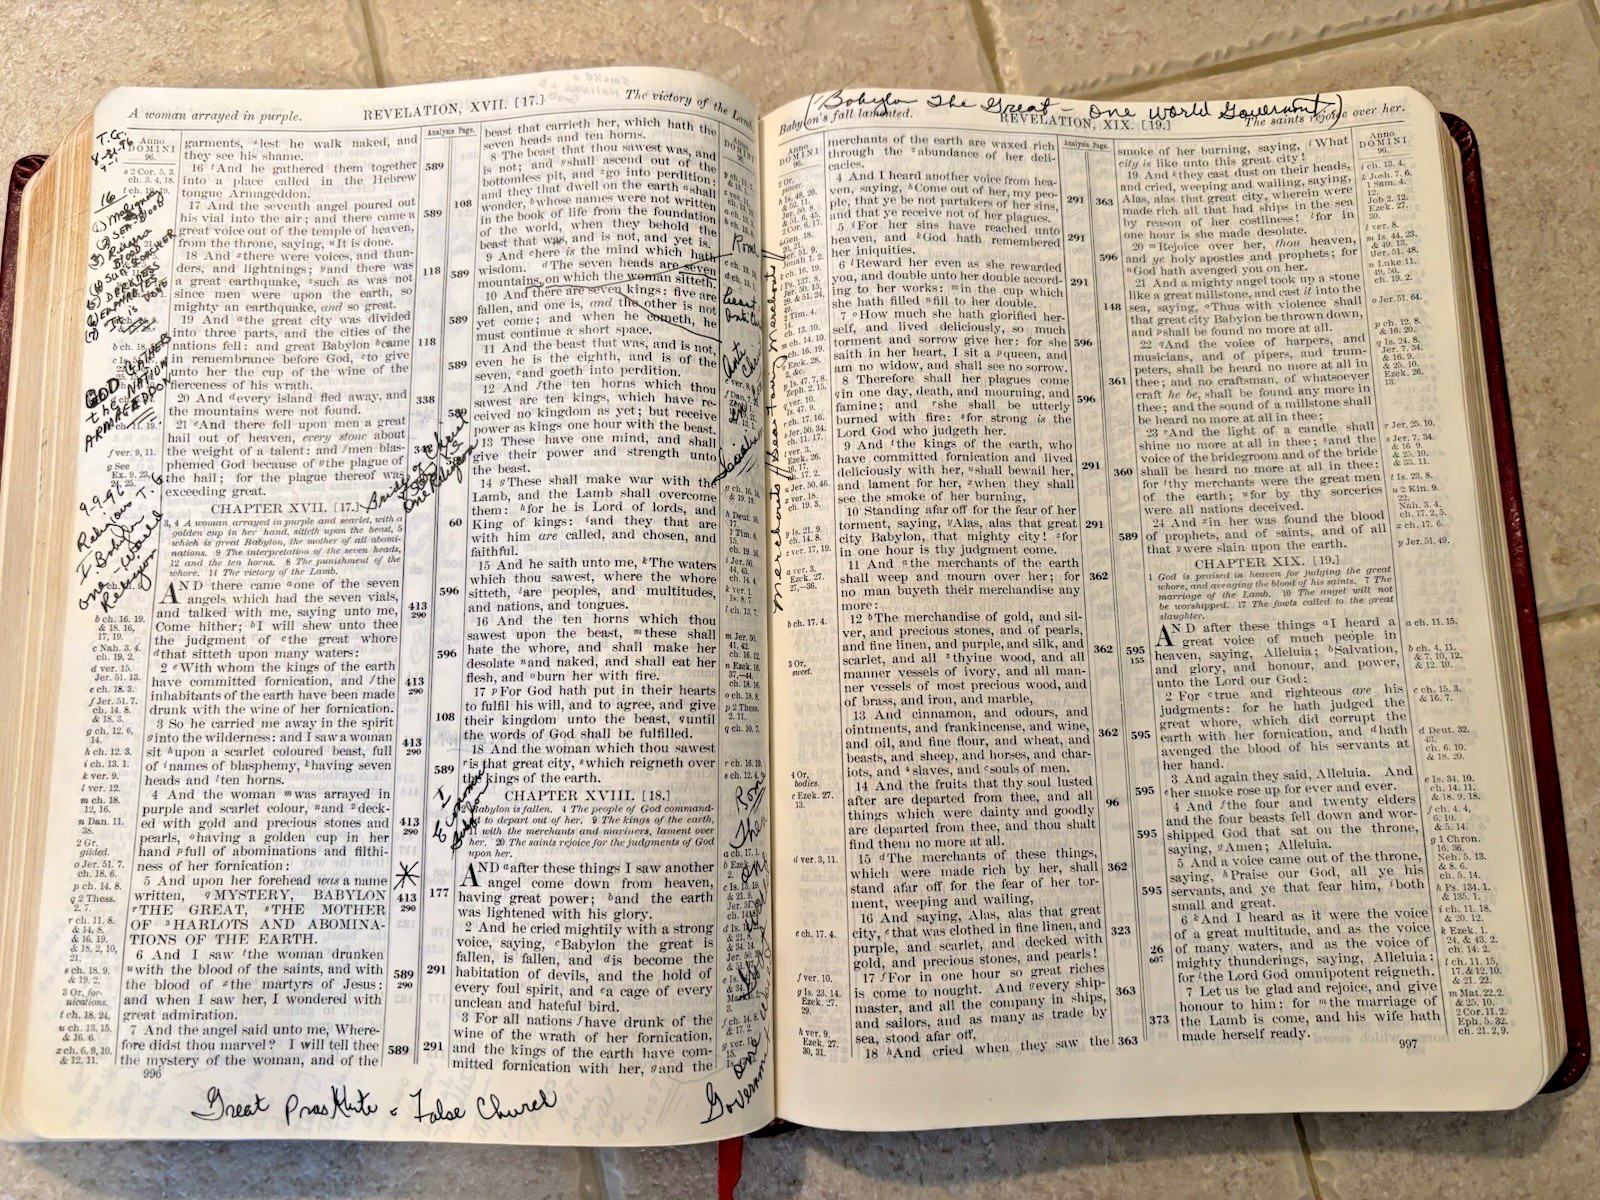 A woman arrayed in purple.
REVELATION, XVII. [17.]
The victory of the Lamb.
T.G.
8-21-96
16
GOD GATHERS
the NATION
ARMAGEDDON
9-9-96
Religious T.G
I Babylon
one-World
Religion
Anno
DOMINI
96.
s 2 Cor. 5. 3.
ch. 3. 4, 18.
f ver. 9, 11.
g See
Ex. 9. 23,
24, 25.
b ch. 16. 19.
& 18. 16,
17, 19.
c Nah. 3. 4.
ch. 19. 2.
d ver. 15.
Jer. 51. 13.
e ch. 18. 3.
f Jer. 51. 7.
ch. 14. 8.
& 18. 3.
g ch. 12. 6,
14.
h ch. 12. 3.
i ch. 13. 1.
k ver. 9.
l ver. 12.
m ch. 18.
12, 16.
n Dan. 11.
38.
2 Gr.
gilded.
o Jer. 51. 7.
ch. 18. 6.
p ch. 14. 8.
q 2 Thess.
2. 7.
r ch. 11. 8.
& 14. 8.
& 16. 19.
& 18. 2, 10,
21.
s ch. 18. 9.
& 19. 2.
3 Or, for-
nications.
t ch. 18. 24.
u ch. 13. 15.
& 16. 6.
x ch. 6. 9, 10.
& 12. 11.
garments, lest he walk naked, and
they see his shame.
16 And he gathered them together
into a place called in the Hebrew
tongue Armageddon.
17 And the seventh angel poured out
his vial into the air; and there came a
great voice out of the temple of heaven,
from the throne, saying, It is done.
18 And there were voices, and thun-
ders, and lightnings; and there was
a great earthquake, such as was not
since men were upon the earth, so
mighty an earthquake, and so great.
19 And the great city was divided
into three parts, and the cities of the
nations fell: and great Babylon came
in remembrance before God, to give
unto her the cup of the wine of the
fierceness of his wrath.
20 And every island fled away, and
the mountains were not found.
21 And there fell upon men a great
hail out of heaven, every stone about
the weight of a talent: and men blas-
phemed God because of the plague of
the hail; for the plague thereof was
exceeding great.
CHAPTER XVII. [17.]
3, 4 A woman arrayed in purple and scarlet, with a
golden cup in her hand, sitteth upon the beast, 5
which is great Babylon, the mother of all abomi-
nations. 9 The interpretation of the seven heads,
12 and the ten horns. 8 The punishment of the
whore. 14 The victory of the Lamb.
AND there came one of the seven
angels which had the seven vials,
and talked with me, saying unto me,
Come hither; I will shew unto thee
the judgment of the great whore
that sitteth upon many waters:
2 With whom the kings of the earth
have committed fornication, and the
inhabitants of the earth have been made
drunk with the wine of her fornication.
3 So he carried me away in the spirit
into the wilderness: and I saw a woman
sit upon a scarlet coloured beast, full
of names of blasphemy, having seven
heads and ten horns.
4 And the woman was arrayed in
purple and scarlet colour, and deck-
ed with gold and precious stones and
pearls, having a golden cup in her
hand full of abominations and filthi-
ness of her fornication:
5 And upon her forehead was a name
written, MYSTERY, BABYLON
THE GREAT, THE MOTHER
OF HARLOTS AND ABOMINA-
TIONS OF THE EARTH.
6 And I saw the woman drunken
with the blood of the saints, and with
the blood of the martyrs of Jesus:
and when I saw her, I wondered with
great admiration.
7 And the angel said unto me, Where-
fore didst thou marvel? I will tell thee
the mystery of the woman, and of the
996
Analysis Page.
589
589
118
118
338
413
290
413
290
413
290
413
290
413
290
589
290
589
108
589
589
589
589
60
596
596
108
589
177
291
291
beast that carrieth her, which hath the
seven heads and ten horns.
8 The beast that thou sawest was, and
is not; and shall ascend out of the
bottomless pit, and go into perdition:
and they that dwell on the earth shall
wonder, whose names were not written
in the book of life from the foundation
of the world, when they behold the
beast that was, and is not, and yet is.
9 And here is the mind which hath
wisdom. The seven heads are seven
mountains, on which the woman sitteth.
10 And there are seven kings: five are
fallen, and one is, and the other is not
yet come; and when he cometh, he
must continue a short space.
11 And the beast that was, and is not,
even he is the eighth, and is of the
seven, and goeth into perdition.
12 And the ten horns which thou
sawest are ten kings, which have re-
ceived no kingdom as yet; but receive
power as kings one hour with the beast.
13 These have one mind, and shall
give their power and strength unto
the beast.
14 These shall make war with the
Lamb, and the Lamb shall overcome
them: for he is Lord of lords, and
King of kings: and they that are
with him are called, and chosen, and
faithful.
15 And he saith unto me, The waters
which thou sawest, where the whore
sitteth, are peoples, and multitudes,
and nations, and tongues.
16 And the ten horns which thou
sawest upon the beast, these shall
hate the whore, and shall make her
desolate and naked, and shall eat her
flesh, and burn her with fire.
17 For God hath put in their hearts
to fulfil his will, and to agree, and give
their kingdom unto the beast, until
the words of God shall be fulfilled.
18 And the woman which thou sawest
is that great city, which reigneth over
the kings of the earth.
CHAPTER XVIII. [18.]
2 Babylon is fallen. 4 The people of God command-
ed to depart out of her. 9 The kings of the earth,
11 with the merchants and mariners, lament over
her. 20 The saints rejoice for the judgments of God
upon her.
AND after these things I saw another
angel come down from heaven,
having great power; and the earth
was lightened with his glory.
2 And he cried mightily with a strong
voice, saying, Babylon the great is
fallen, is fallen, and is become the
habitation of devils, and the hold of
every foul spirit, and a cage of every
unclean and hateful bird.
3 For all nations have drunk of the
wine of the wrath of her fornication,
and the kings of the earth have com-
mitted fornication with her, and the
Great Prostitute = False Church
(Babylon The Great - One World Government)
Babylon's fall lamented.
REVELATION, XIX. [19.]
The saints rejoice over her.
Anno
DOMINI
96.
b ch. 17. 4.
3 Or,
sweet.
4 Or,
bodies.
e Ezek. 27.
13.
d ver. 3, 11.
e ch. 17. 4.
f ver. 10.
g Is. 23. 14.
Ezek. 27.
29.
h ver. 9.
Ezek. 27.
30, 31.
merchants of the earth are waxed rich
through the abundance of her deli-
cacies.
4 And I heard another voice from hea-
ven, saying, Come out of her, my peo-
ple, that ye be not partakers of her sins,
and that ye receive not of her plagues.
5 For her sins have reached unto
heaven, and God hath remembered
her iniquities.
6 Reward her even as she rewarded
you, and double unto her double accord-
ing to her works: in the cup which
she hath filled fill to her double.
7 How much she hath glorified her-
self, and lived deliciously, so much
torment and sorrow give her: for she
saith in her heart, I sit a queen, and
am no widow, and shall see no sorrow.
8 Therefore shall her plagues come
in one day, death, and mourning, and
famine; and she shall be utterly
burned with fire: for strong is the
Lord God who judgeth her.
9 And the kings of the earth, who
have committed fornication and lived
deliciously with her, shall bewail her,
and lament for her, when they shall
see the smoke of her burning,
10 Standing afar off for the fear of her
torment, saying, Alas, alas that great
city Babylon, that mighty city! for
in one hour is thy judgment come.
11 And the merchants of the earth
shall weep and mourn over her; for
no man buyeth their merchandise any
more:
12 The merchandise of gold, and sil-
ver, and precious stones, and of pearls,
and fine linen, and purple, and silk, and
scarlet, and all thyine wood, and all
manner vessels of ivory, and all man-
ner vessels of most precious wood, and
of brass, and iron, and marble,
13 And cinnamon, and odours, and
ointments, and frankincense, and wine,
and oil, and fine flour, and wheat, and
beasts, and sheep, and horses, and char-
iots, and slaves, and souls of men.
14 And the fruits that thy soul lusted
after are departed from thee, and all
things which were dainty and goodly
are departed from thee, and thou shalt
find them no more at all.
15 The merchants of these things,
which were made rich by her, shall
stand afar off for the fear of her tor-
ment, weeping and wailing,
16 And saying, Alas, alas that great
city, that was clothed in fine linen, and
purple, and scarlet, and decked with
gold, and precious stones, and pearls!
17 For in one hour so great riches
is come to nought. And every ship-
master, and all the company in ships,
and sailors, and as many as trade by
sea, stood afar off,
18 And cried when they saw the
Analysis Page.
291
291
291
596
596
291
291
362
362
362
96
362
323
363
363
363
596
148
361
360
589
595
155
595
595
595
595
26
607
373
smoke of her burning, saying, What
city is like unto this great city!
19 And they cast dust on their heads,
and cried, weeping and wailing, saying,
Alas, alas that great city, wherein were
made rich all that had ships in the sea
by reason of her costliness! for in
one hour is she made desolate.
20 Rejoice over her, thou heaven,
and ye holy apostles and prophets; for
God hath avenged you on her.
21 And a mighty angel took up a stone
like a great millstone, and cast it into the
sea, saying, Thus with violence shall
that great city Babylon be thrown down,
and shall be found no more at all.
22 And the voice of harpers, and
musicians, and of pipers, and trum-
peters, shall be heard no more at all in
thee; and no craftsman, of whatsoever
craft he be, shall be found any more in
thee; and the sound of a millstone shall
be heard no more at all in thee;
23 And the light of a candle shall
shine no more at all in thee; and the
voice of the bridegroom and of the bride
shall be heard no more at all in thee:
for thy merchants were the great men
of the earth; for by thy sorceries
were all nations deceived.
24 And in her was found the blood
of prophets, and of saints, and of all
that were slain upon the earth.
CHAPTER XIX. [19.]
1 God is praised in heaven for judging the great
whore, and avenging the blood of his saints. 7 The
marriage of the Lamb. 10 The angel will not
be worshipped. 17 The fowls called to the great
slaughter.
AND after these things I heard a
great voice of much people in
heaven, saying, Alleluia; Salvation,
and glory, and honour, and power,
unto the Lord our God:
2 For true and righteous are his
judgments: for he hath judged the
great whore, which did corrupt the
earth with her fornication, and hath
avenged the blood of his servants at
her hand.
3 And again they said, Alleluia. And
her smoke rose up for ever and ever.
4 And the four and twenty elders
and the four beasts fell down and wor-
shipped God that sat on the throne,
saying, Amen; Alleluia.
5 And a voice came out of the throne,
saying, Praise our God, all ye his
servants, and ye that fear him, both
small and great.
6 And I heard as it were the voice
of a great multitude, and as the voice
of many waters, and as the voice of
mighty thunderings, saying, Alleluia:
for the Lord God omnipotent reigneth.
7 Let us be glad and rejoice, and give
honour to him: for the marriage of
the Lamb is come, and his wife hath
made herself ready.
Anno
DOMINI
96.
i ch. 13. 4.
k Josh. 7. 6.
1 Sam. 4.
12.
Job 2. 12.
Ezek. 27.
30.
l ver. 8.
m Is. 44. 23.
& 49. 13.
Jer. 51. 48.
n Luke 11.
49, 50.
ch. 19. 2.
o Jer. 51. 64.
p ch. 12. 8.
& 16. 20.
q Is. 24. 8.
Jer. 7. 34.
& 16. 9.
& 25. 10.
Ezek. 26.
13.
r Jer. 25. 10.
s Jer. 7. 34.
& 16. 9.
& 25. 10.
& 33. 11.
t Is. 23. 8.
u 2 Kin. 9.
22.
Nah. 3. 4.
ch. 17. 2, 5.
x ch. 17. 6.
y Jer. 51. 49.
a ch. 11. 15.
b ch. 4. 11.
& 7. 10, 12.
& 12. 10.
c ch. 15. 3.
& 16. 7.
d Deut. 32.
43.
ch. 6. 10.
& 18. 20.
e Is. 34. 10.
ch. 14. 11.
& 18. 9, 18.
f ch. 4. 4,
6, 10.
& 5. 14.
g 1 Chron.
16. 36.
Neh. 5. 13.
& 8. 6.
ch. 5. 14.
h Ps. 134. 1.
& 135. 1.
i ch. 11. 18.
& 20. 12.
k Ezek. 1.
24. & 43. 2.
ch. 14. 2.
l ch. 11. 15,
17. & 12. 10.
& 21. 22.
m Mat. 22. 2.
& 25. 10.
2 Cor. 11. 2.
Eph. 5. 32.
ch. 21. 2, 9.
997